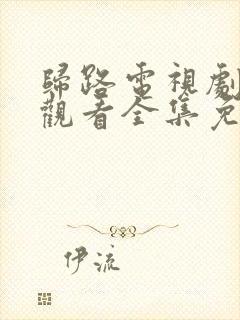 歸路電視劇
觀看全集免
伊流